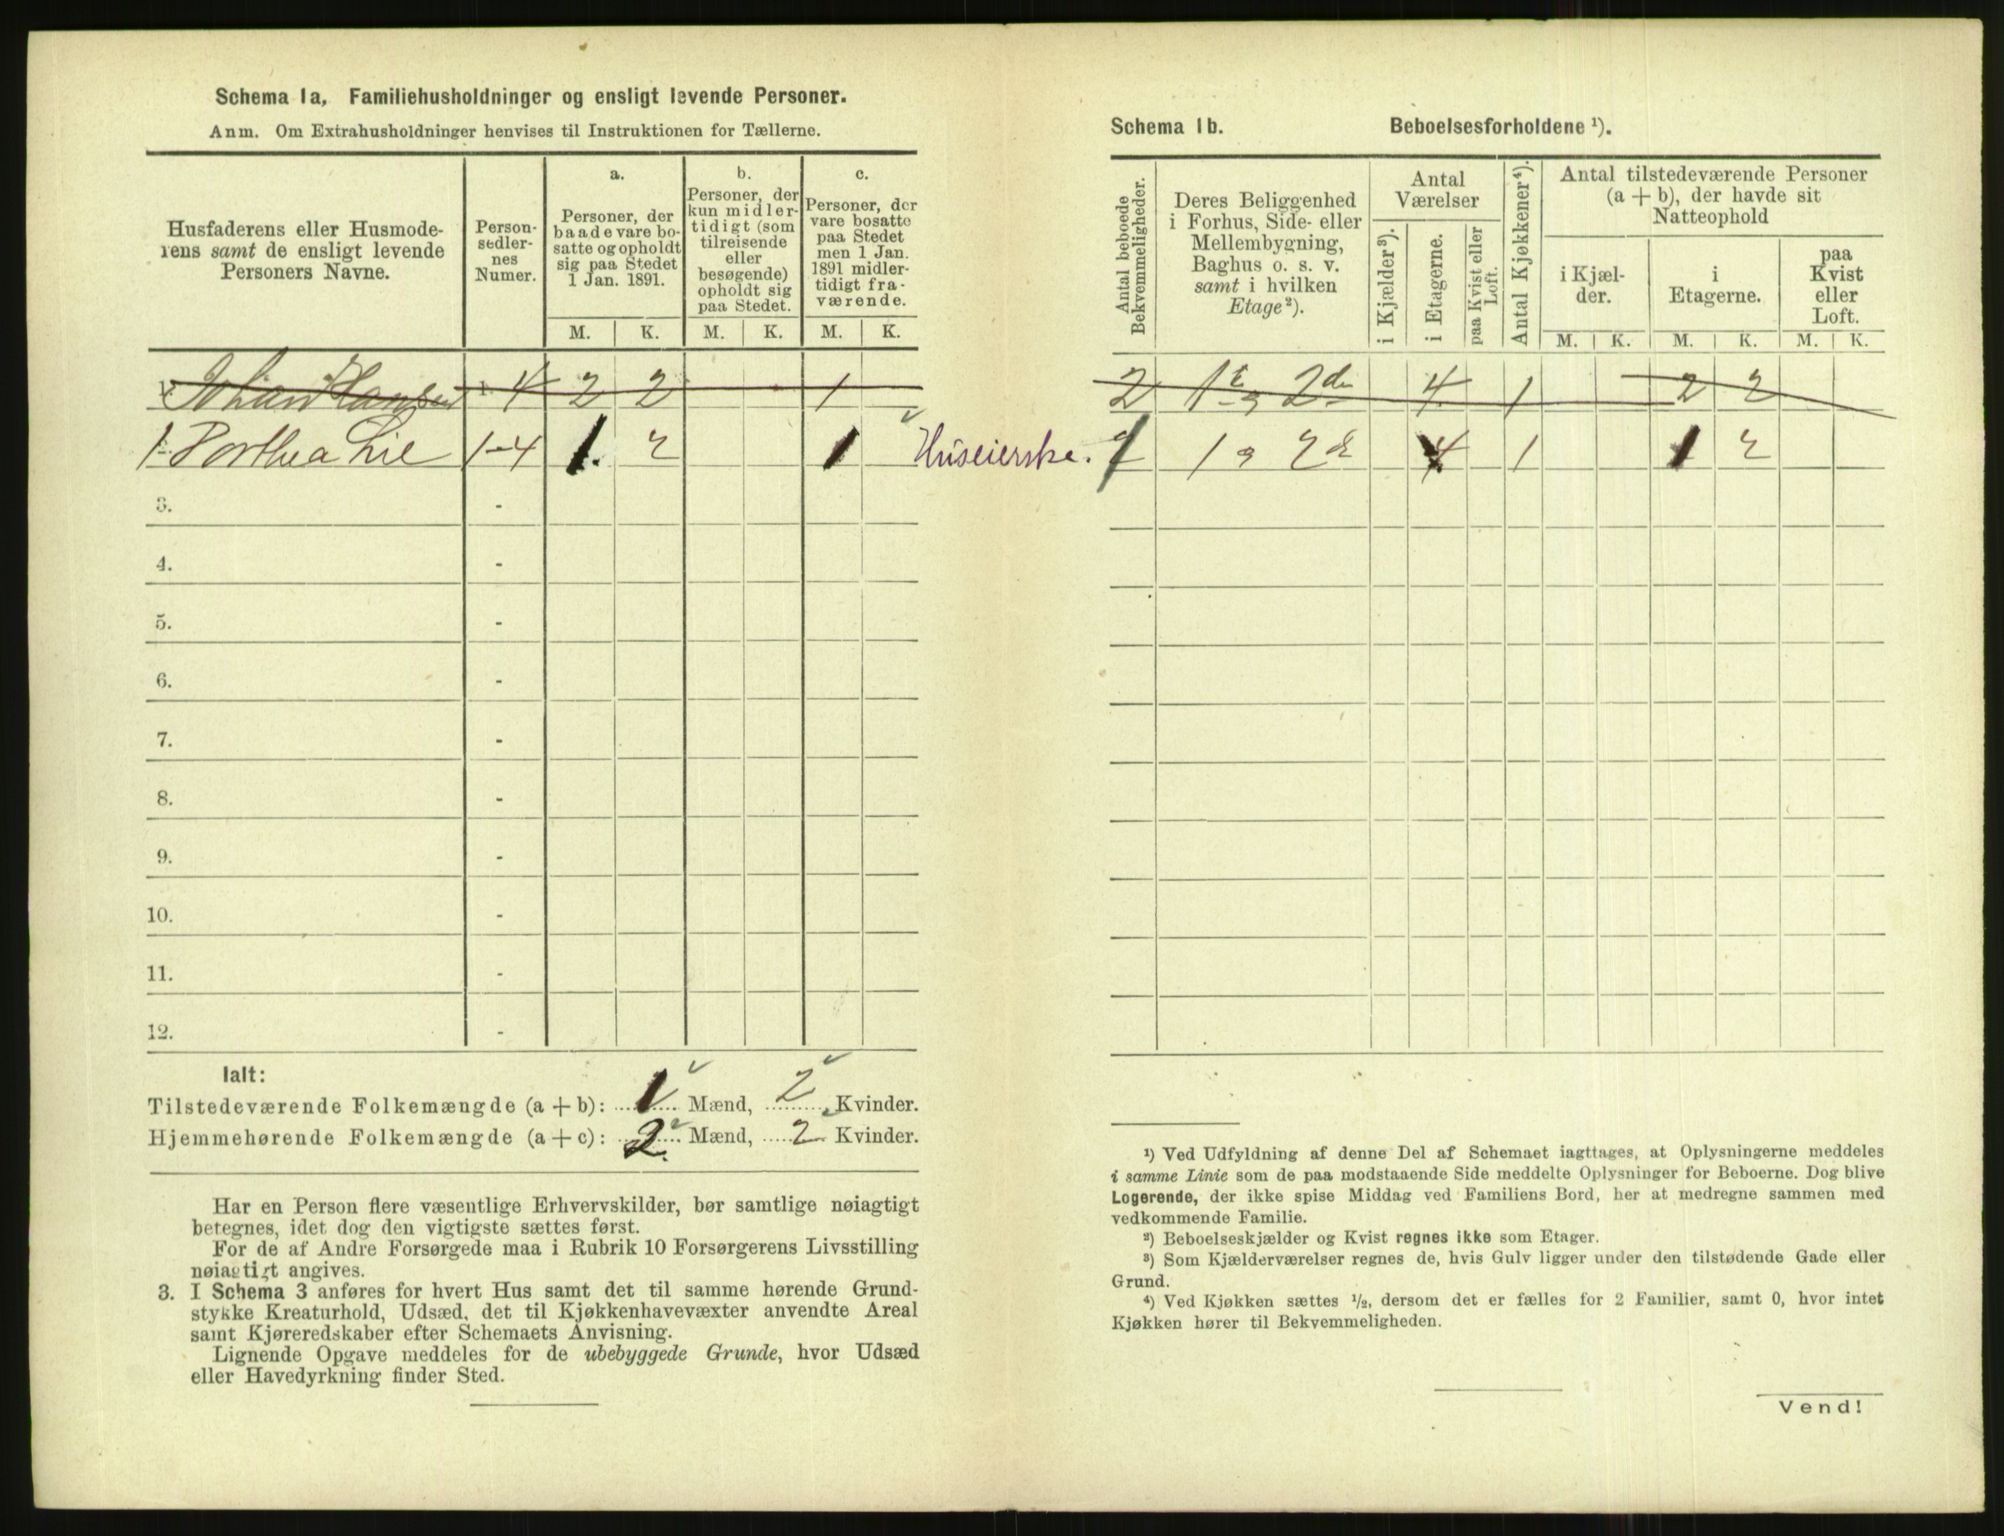 Schema 1a, Familiehusholdninger og ensligt levende Personer.
Anm. Om Extrahusholdninger henvises til Instruktionen for Tællerne.
Husfaderens eller Husmode-
rens samt de ensligt levende
Personers Navne.
Person-
sedler-
nes
Numer.
a.
Personer, der
baade vare bo-
satte og opholdt
sig paa Stedet
1 Jan. 1891.
b.
Personer, der
kun midler-
tidigt (som
tilreisende
eller
besøgende)
opholdt sig
paa Stedet.
c.
Personer, der
vare bosatte
paa Stedet
men 1 Jan.
1891 midler-
tidigt fra-
værende.
M. K. M. K. M. K.
Johan Hansen 1-4 2 2 1
1. Dorthea Lie 1-4 1. 2 1
3. -
4. -
5. -
6. -
7. -
8. -
9. -
10. -
11. -
12. -
Ialt:
Tilstedeværende Folkemængde (a + b): 1 Mænd, 2 Kvinder.
Hjemmehørende Folkemængde (a + c): 2 Mænd, 2 Kvinder.
Har en Person flere væsentlige Erhvervskilder, bør samtlige nøiagtigt
betegnes, idet dog den vigtigste sættes først.
For de af Andre Forsørgede maa i Rubrik 10 Forsørgerens Livsstilling
nøiagtigt angives.
3. I Schema 3 anføres for hvert Hus samt det til samme hørende Grund-
stykke Kreaturhold, Udsæd, det til Kjøkkenhavevæxter anvendte Areal
samt Kjøreredskaber efter Schemaets Anvisning.
Lignende Opgave meddeles for de ubebyggede Grunde, hvor Udsæd
eller Havedyrkning finder Sted.
Schema 1b. Beboelsesforholdene ¹).
Antal beboede
Bekvemmeligheder.
Deres Beliggenhed
i Forhus, Side- eller
Mellembygning,
Baghus o. s. v.
samt i hvilken
Etage²).
Antal
Værelser
i Kjælder³).
i Etagerne.
paa Kvist eller
Loft.
Antal Kjøkkener⁴).
Antal tilstedeværende Personer
(a + b), der havde sit
Natteophold
i Kjæl-
der.
i
Etagerne.
paa
Kvist
eller
Loft.
M. K. M. K. M. K.
2 1te og 2den 4 1 2 2
Huseierske. 1 1 og 2de 4 1 1 2
¹) Ved Udfyldning af denne Del af Schemaet iagttages, at Oplysningerne meddeles
i samme Linie som de paa modstaaende Side meddelte Oplysninger for Beboerne. Dog blive
Logerende, der ikke spise Middag ved Familiens Bord, her at medregne sammen med
vedkommende Familie.
²) Beboelseskjælder og Kvist regnes ikke som Etager.
³) Som Kjælderværelser regnes de, hvis Gulv ligger under den tilstødende Gade eller
Grund.
⁴) Ved Kjøkken sættes ¹/₂, dersom det er fælles for 2 Familier, samt 0, hvor intet
Kjøkken hører til Bekvemmeligheden.
Vend!